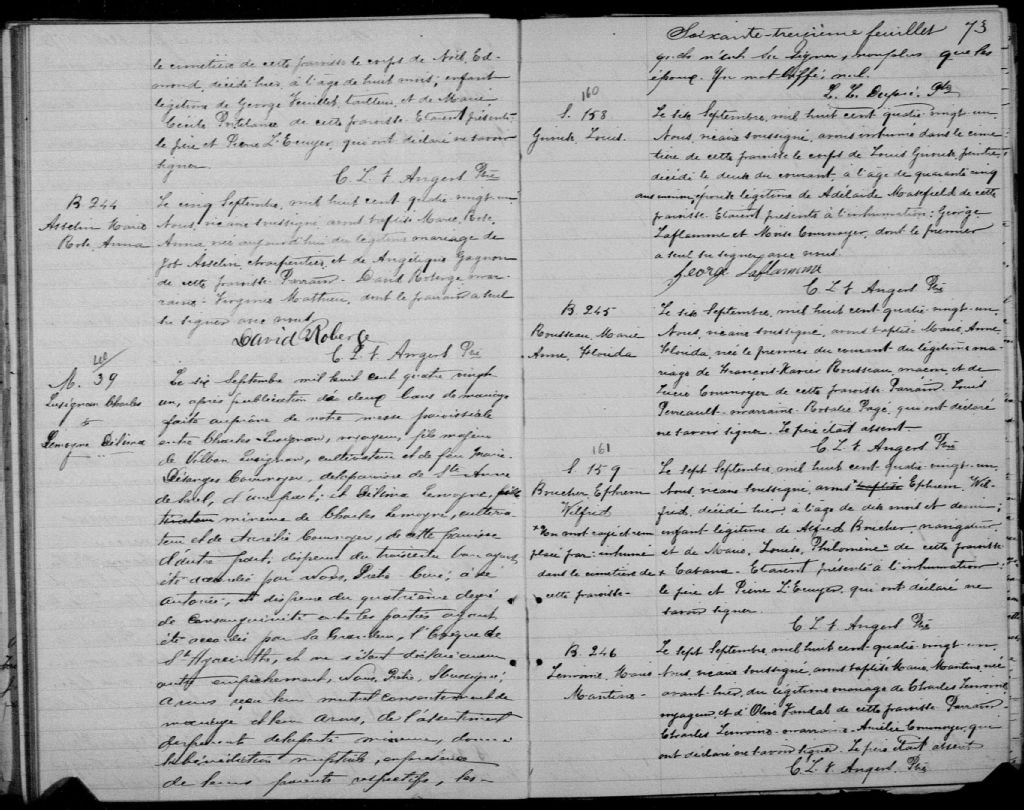 le cimetière de cette paroisse le corps de Noël, Ed-
mond, décédé hier, à l'âge de huit mois; enfant
légitime de George Feuillet, tailleur, et de Marie
Cécile Portelance de cette paroisse. Etaient présents
le père et Pierre L'Ecuyer, qui ont déclaré ne savoir
signer.
C. L. V. Angers Ptre
B 244
Asselin Marie
Rose, Anna
Le cinq Septembre, mil huit cent quatre-vingt-un
Nous, vicaire soussigné, avons baptisé Marie, Rose,
Anna, née aujourd'hui du légitime mariage de
Job Asselin charpentier, et de Angélique Gagnon
de cette paroisse. Parrain - David Roberge mar-
raine - Virginie Mathieu, dont le parrain a seul
su signer avec nous.
David Roberge
C. L. V. Angers Ptre
40
M. 39
Lusignan Charles
&
Lemoyne Délina
Le six Septembre mil huit cent quatre vingt
un, après publication de deux bans de mariage
faite au prône de notre messe paroissiale
entre Charles Lusignan, voyageur, fils majeur
de Lusignan, cultivateur et de feue Marie
Désanges Cournoyer, de la paroisse de Ste Anne
de Sorel, d'une part; et Délina Lemoyne, fille
mineure de Charles Lemoyne, cultiva-
teur et de Aurélie Cournoyer, de cette paroisse
d'autre part; dispense du troisième ban ayant
été accordée par Nous, Prêtre Curé, à ce
autorisé, et dispense du quatrième degré
de consanguinité entre les parties ayant
été accordée par Sa Grandeur, l'Evêque de
St Hyacinthe, et ne s'étant déclaré aucun
autre empêchement, Nous, Prêtre, Soussigné,
avons reçu leur mutuel consentement de
mariage et leur avons, de l'assentiment
des parents de la partie mineure, donné
la bénédiction nuptiale, en présence
de leurs parents respectifs, les-
Soixante-treizième feuillet 73
quels n'ont su signer, non plus que les
époux. Un mot biffé, nul.
L. L. Dupré. Ptre
160
S. 158
Louis.
Le six Septembre, mil huit cent quatre-vingt-un.
Nous, vicaire soussigné, avons inhumé dans le cime-
tière de cette paroisse le corps de Louis peintre,
décédé le deux du courant, à l'âge de quarante cinq
ans environ, époux légitime de Adélaïde de cette
paroisse. Etaient présents à l'inhumation: George
Laflamme et Moïse Cournoyer, dont le premier
a seul su signer avec nous.
George Laflamme
C. L. V. Angers Ptre
B. 245
Rousseau, Marie
Anne, Florida
Le six Septembre, mil huit cent quatre-vingt-un.
Nous, vicaire soussigné, avons baptisé Marie, Anne,
Florida, née le premier du courant du légitime ma-
riage de François-Xavier Rousseau, maçon, et de
Lucie Cournoyer de cette paroisse. Parrain Louis
Perreault - marraine - Rosalie Pagé, qui ont déclaré
ne savoir signer. Le père était absent.
C. L. V. Angers Ptre
161
S. 159
Boucher Ephrem
Wilfrid
+ Un mot rayé et rem
placé par: inhumé
dans le cimetière de
cette paroisse -
Le sept Septembre, mil huit cent quatre-vingt-un.
Nous, vicaire soussigné, avons + baptisé Ephrem, Wil-
frid, décédé hier, à l'âge de dix mois et demi;
enfant légitime de Alfred Boucher navigateur
et de Marie, Louise, Philomène - de cette paroisse
+ Cabana - Etaient présents à l'inhumation:
le père et Pierre L'Ecuyer, qui ont déclaré ne
savoir signer.
C. L. V. Angers Ptre
B. 246
Lemoine, Marie
Martine -
Le sept Septembre, mil huit cent quatre-vingt-un.
Nous, vicaire soussigné, avons baptisé Marie, Martine, née
avant hier, du légitime mariage de Charles Lemoine
voyageur, et d'Olive Vandal de cette paroisse. Parrain
Charles Lemoine - marraine - Amélie Cournoyer, qui
ont déclaré ne savoir signer. Le père était absent
C. L. V. Angers Ptre